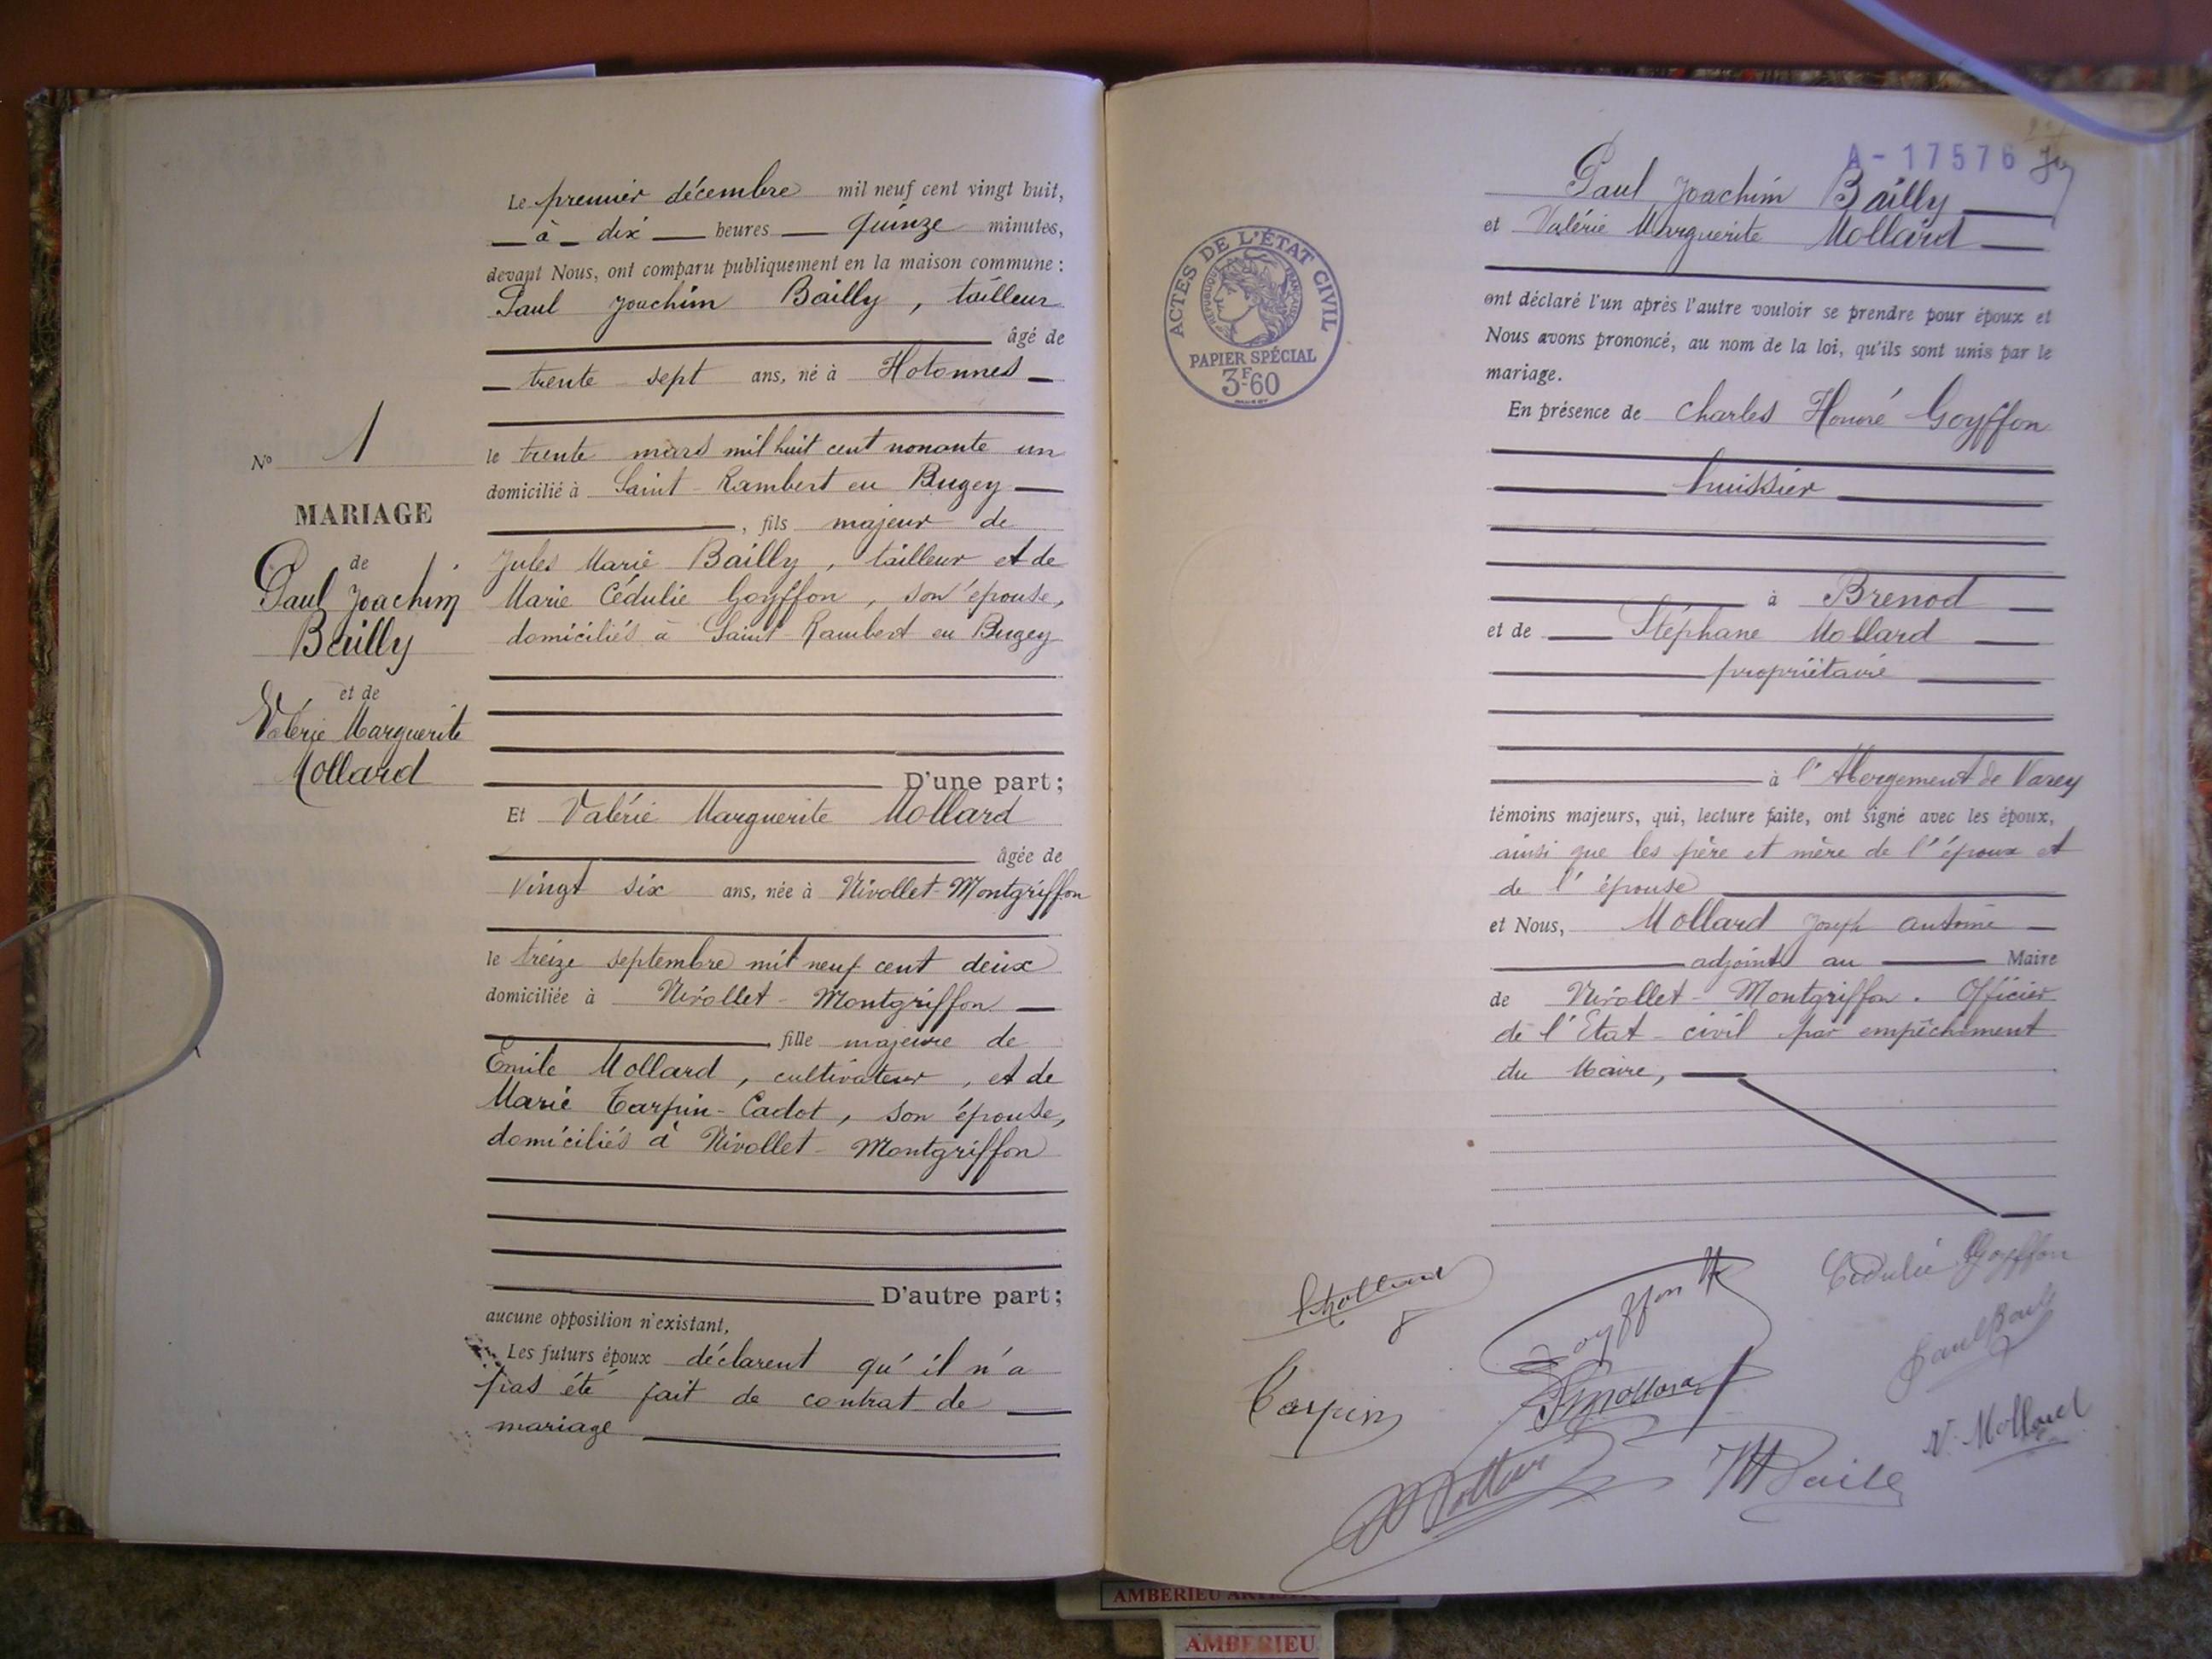 Le premier décembre mil neuf cent vingt huit,
à dix heures quinze minutes,
devant Nous, ont comparu publiquement en la maison commune :
Paul Joachim Bailly, tailleur
âgé de
trente sept ans, né à Hotonnes
le trente mars mil huit cent nonante un
domicilié à Saint-Rambert en Bugey
, fils majeur de
Jules Marie Bailly, tailleur et de
Marie Cédulie Goyffon, son épouse,
domiciliés à Saint-Rambert en Bugey
D'une part;
Et Valérie Marguerite Mollard
âgée de
vingt six ans, née à Nivollet-Montgriffon
le treize septembre mil neuf cent deux
domiciliée à Nivollet-Montgriffon
, fille majeure de
Emile Mollard, cultivateur, et de
Marie Tarpin-Cadot, son épouse,
domiciliés à Nivollet-Montgriffon
D'autre part;
aucune opposition n'existant,
Les futurs époux déclarent qu'il n'a
pas été fait de contrat de
mariage
No 1
MARIAGE
de
Paul Joachim
Bailly
et de
Valérie Marguerite
Mollard
A-17576
Paul Joachim Bailly
et Valérie Marguerite Mollard
ont déclaré l'un après l'autre vouloir se prendre pour époux et
Nous avons prononcé, au nom de la loi, qu'ils sont unis par le
mariage.
En présence de Charles Honoré Goyffon
huissier
à Brenod
et de Stéphane Mollard
propriétaire
à l'Abergement de Varey
témoins majeurs, qui, lecture faite, ont signé avec les époux,
ainsi que les père et mère de l'époux et
de l'épouse
et Nous, Mollard Joseph Antoine
adjoint au Maire
de Nivollet-Montgriffon. Officier
de l'Etat-civil par empêchement
du Maire,
ACTES DE L'ÉTAT CIVIL
RÉPUBLIQUE FRANÇAISE
PAPIER SPÉCIAL
3F60
Mollard
Goyffon
Cédulie Goyffon
Paul Bailly
Tarpin
Mollard
V. Mollard
Mollard
Bailly
AMBERIEU
AMBERIEU